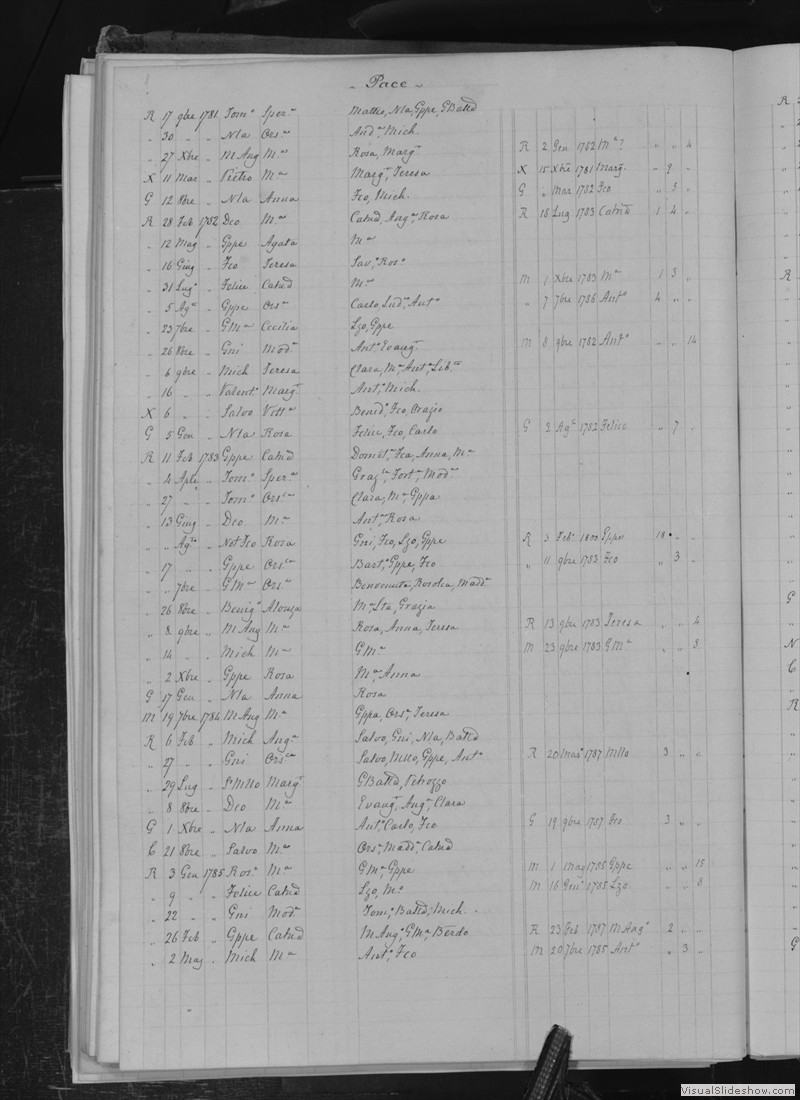 Pace
R 17 9bre 1781 Tom.o Sper.a Matteo, Nla, Gppe, GBatta
" 30 " " Nla Ors.a And.a, Mich.
" 27 Xbre " M Ang M.a Rosa, Marg.a R 2 Gen 1782 M.a? " " 4
X 11 Mar " Pietro M.a Marg.a, Teresa X 15 Xbre 1781 Marg.a " 9 "
G 12 8bre " Nla Anna Fco, Mich. G " Mar 1782 Fco " 5 "
R 28 Feb 1782 Dco M.a Catnd, Ang.a, Rosa R 18 Lug 1783 Catnd 1 4 "
" 12 Mag " Gppe Agata M.a
" 16 Giug " Fco Teresa Sav.a, Ros.o
" 31 Lug.o " Felice Catnd M.a M 1 Xbre 1783 M.a 1 3 "
" 5 Ag.o " Gppe Ors.a Carlo, Lud.o, Ant.o " 7 7bre 1786 Ant.o 4 " "
" 23 7bre " GM.a Cecilia Lzo, Gppe
" 26 8bre " Gni Mod.a Ant.a, Evang. M 8 9bre 1782 Ant.o " " 14
" 6 9bre " Mich Teresa Clara, M.a, Ant.a, Lib.a
" 16 " " Valent.o Marg.a Ant.o, Mich.
X 6 " " Salvo Vitt.a Bened.o, Fco, Orazio
G 5 Gen " Nla Rosa Felice, Fco, Carlo G 2 Ag.o 1782 Felice " 7 "
R 11 Feb 1783 Gppe Catnd Domen.a, Fca, Anna, M.a
" 4 Aple " Tom.o Sper.a Graz.a, Fort.a, Mod.a
" 27 " " Tom.o Ors.a Clara, M.a, Gppa
" 13 Giug " Dco M.a Ant.a, Rosa
" " Ag.o " Not Fco Rosa Gni, Fco, Lzo, Gppe R 3 Feb. 1800 Gppe 18 " "
" 17 " " Gppe Ors.a Bart.o, Gppe, Fco " 11 9bre 1783 Fco " 3 "
" " 7bre " GM.a Ors.a Benvenuta, Rosolea, Madd.a
" 26 8bre " Benig.o Alonza M.a, Sta, Grazia
" 8 9bre " M Ang M.a Rosa, Anna, Teresa R 13 9bre 1783 Teresa " " 4
" 14 " " Mich M.a GM.a M 23 9bre 1783 GM.a " " 8
" 2 Xbre " Gppe Rosa M.a, Anna
G 17 Gen " Nla Anna Rosa
M 19 7bre 1784 M Ang M.a Gppa, Ors.a, Teresa
R 6 Feb " Mich Ang.a Salvo, Gni, Nla, Batta
" 27 " " Gni Ors.a Salvo, Mllo, Gppe, Ant.o R 20 1787 Mllo 3 " "
" 29 Lug " Mllo Marg.a GBatta, Petrozzo
" 8 8bre " Dco M.a Evang.a, Ang.a, Clara
G 1 Xbre " Nla Anna Ant.o, Carlo, Fco G 19 9bre 1787 Fco 3 " "
C 21 8bre " Salvo M.a Ors.a, Madd.a, Catnd
R 3 Gen 1785 Ros.o M.a GM.a, Gppe M 1 Mag 1785 Gppe " " 15
" 9 " " Felice Catnd Lzo, M.a M 16 Gen 1785 Lzo " " 8
" 22 " " Gni Mod.a Tom.o, Batta, Mich.
" 26 Feb " Gppe Catnd M Ang.o, GM.a, Berdo R 23 Feb 1787 M Ang.o 2 " "
" 2 Mag " Mich M.a Ant.o, Fco M 20 7bre 1785 Ant.o " 3 "
VisualSlideshow.com